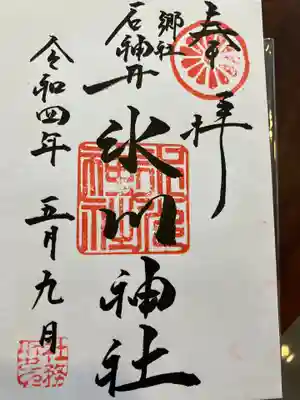 奉拝
郷社
石神井
氷川神社
令和四年五月九日